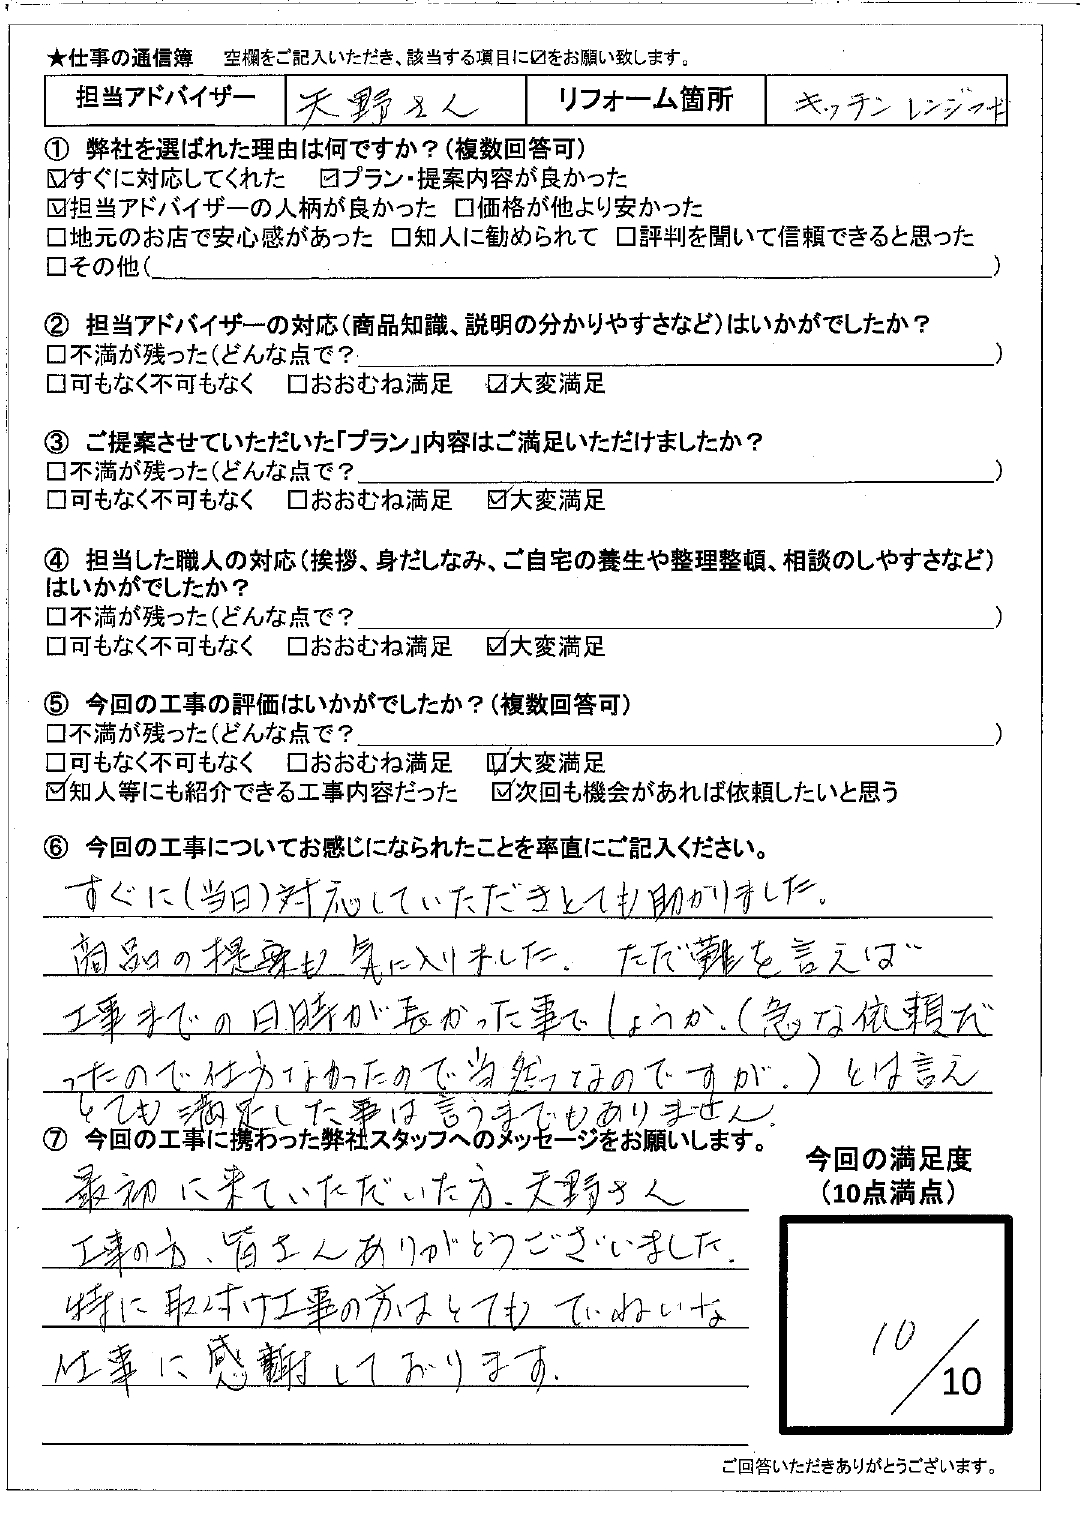 ★仕事の通信簿 空欄をご記入いただき、該当する項目に☑をお願い致します。
担当アドバイザー 天野さん リフォーム箇所 キッチン レンジフード
① 弊社を選ばれた理由は何ですか？（複数回答可）
☑すぐに対応してくれた ☑プラン・提案内容が良かった
☑担当アドバイザーの人柄が良かった □価格が他より安かった
□地元のお店で安心感があった □知人に勧められて □評判を聞いて信頼できると思った
□その他（ ）
② 担当アドバイザーの対応（商品知識、説明の分かりやすさなど）はいかがでしたか？
□不満が残った（どんな点で？ ）
□可もなく不可もなく □おおむね満足 ☑大変満足
③ ご提案させていただいた「プラン」内容はご満足いただけましたか？
□不満が残った（どんな点で？ ）
□可もなく不可もなく □おおむね満足 ☑大変満足
④ 担当した職人の対応（挨拶、身だしなみ、ご自宅の養生や整理整頓、相談のしやすさなど）
はいかがでしたか？
□不満が残った（どんな点で？ ）
□可もなく不可もなく □おおむね満足 ☑大変満足
⑤ 今回の工事の評価はいかがでしたか？（複数回答可）
□不満が残った（どんな点で？ ）
□可もなく不可もなく □おおむね満足 ☑大変満足
☑知人等にも紹介できる工事内容だった ☑次回も機会があれば依頼したいと思う
⑥ 今回の工事についてお感じになられたことを率直にご記入ください。
すぐに（当日）対応していただきとても助かりました。
商品の提案も気に入りました。ただ難を言えば
工事までの日時が長かった事でしょうか。（急な依頼だ
ったので仕方なかったので当然っなのですが。）とは言え
とても満足した事は言うまでもありません。
⑦ 今回の工事に携わった弊社スタッフへのメッセージをお願いします。
最初に来ていただいた方、天野さん
工事の方、皆さんありがとうございました。
特に取付け工事の方はとてもていねいな
仕事に感謝しております。
今回の満足度
（10点満点）
10／10
ご回答いただきありがとうございます。